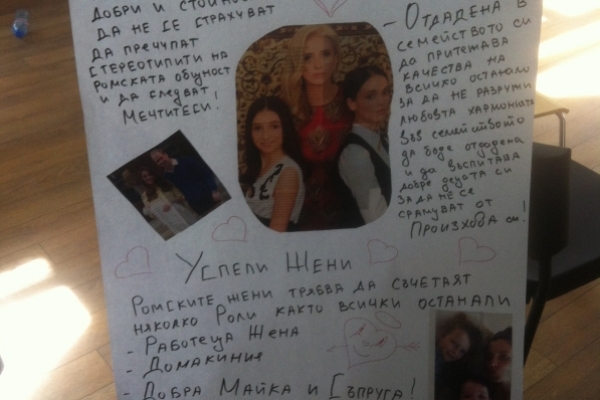 ДОБРИ И СТОЙНОС
ДА НЕ СЕ СТРАХУВАТ
ДА ПРЕЧУПАТ
СТЕРЕОТИПИТИ НА
РОМСКАТА ОБЩНОСТ
И ДА СЛЕДВАТ
МЕЧТИТЕСИ!
- ОТДАДЕНА В
СЕМЕЙСТВОТО СИ
ДА ПРИТЕЖАВА
КАЧЕСТВА НА
ВСИЧКО ОСТАНАЛО
ЗА ДА НЕ РАЗРУШИ
ЛЮБОВТА ХАРМОНИЯТА
ВЪВ СЕМЕЙСТВОТО
ДА БЪДЕ ОТДАДЕНА
И ДА ВЪЗПИТАВА
ДОБРЕ ДЕЦАТА СИ
ЗА ДА НЕ СЕ
СРАМУВАТ ОТ
ПРОИЗХОДА СИ!
УСПЕЛИ ЖЕНИ
РОМСКИТЕ ЖЕНИ ТРЯБВА ДА СЪЧЕТАЯТ
НЯКОЛКО РОЛИ КАКТО ВСИЧКИ ОСТАНАЛИ
- РАБОТЕЩА ЖЕНА
- ДОМАКИНИЯ
- ДОБРА МАЙКА И СЪПРУГА!